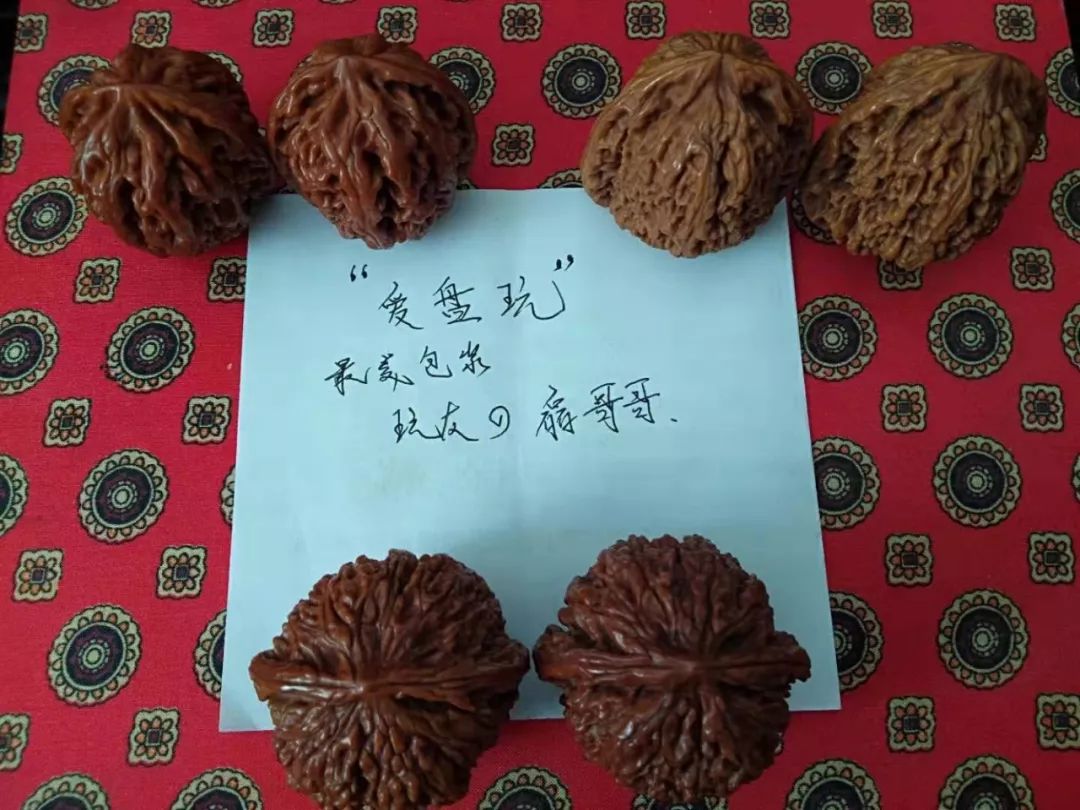 “爱盘玩”
最美包浆
玩友の扇哥哥.